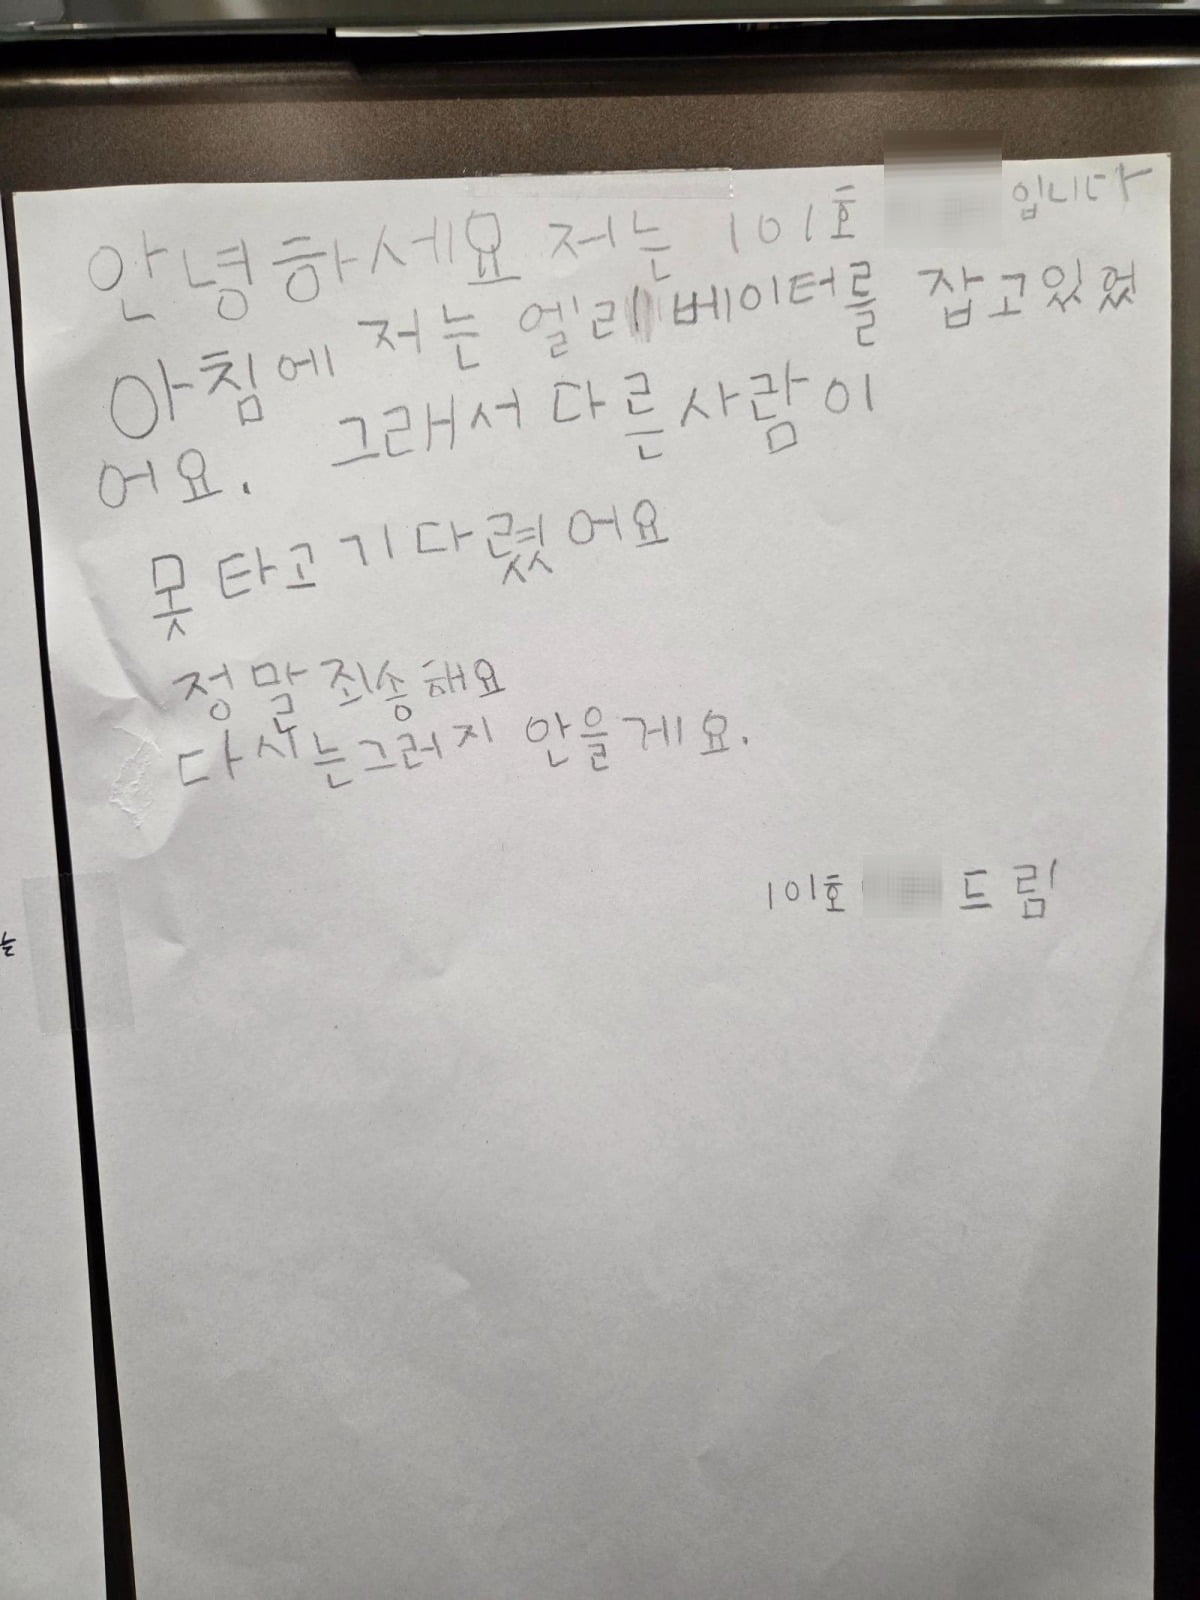 안녕하세요 저는 101호 입니다
아침에 저는 엘리베이터를 잡고있었
어요. 그래서 다른사람이
못타고 기다렸어요
정말죄송해요
다시는그러지 안을게요.
101호 드림
는